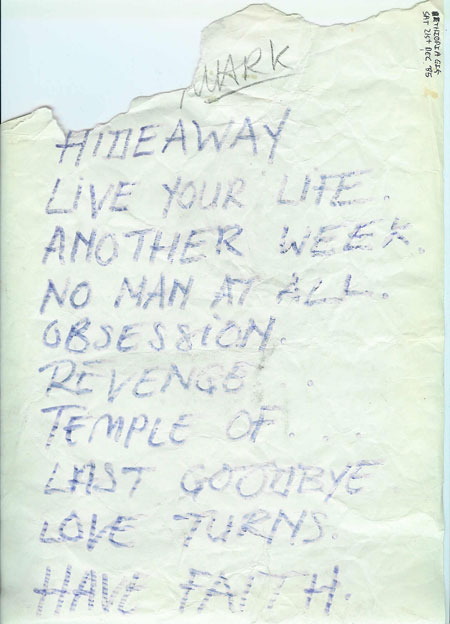 ETHIOPIA GIG
SAT 21st DEC '85
MARK
HIDEAWAY
LIVE YOUR LIFE.
ANOTHER WEEK.
NO MAN AT ALL.
OBSESSION.
REVENGE.
TEMPLE OF...
LAST GOODBYE.
LOVE TURNS.
HAVE FAITH.